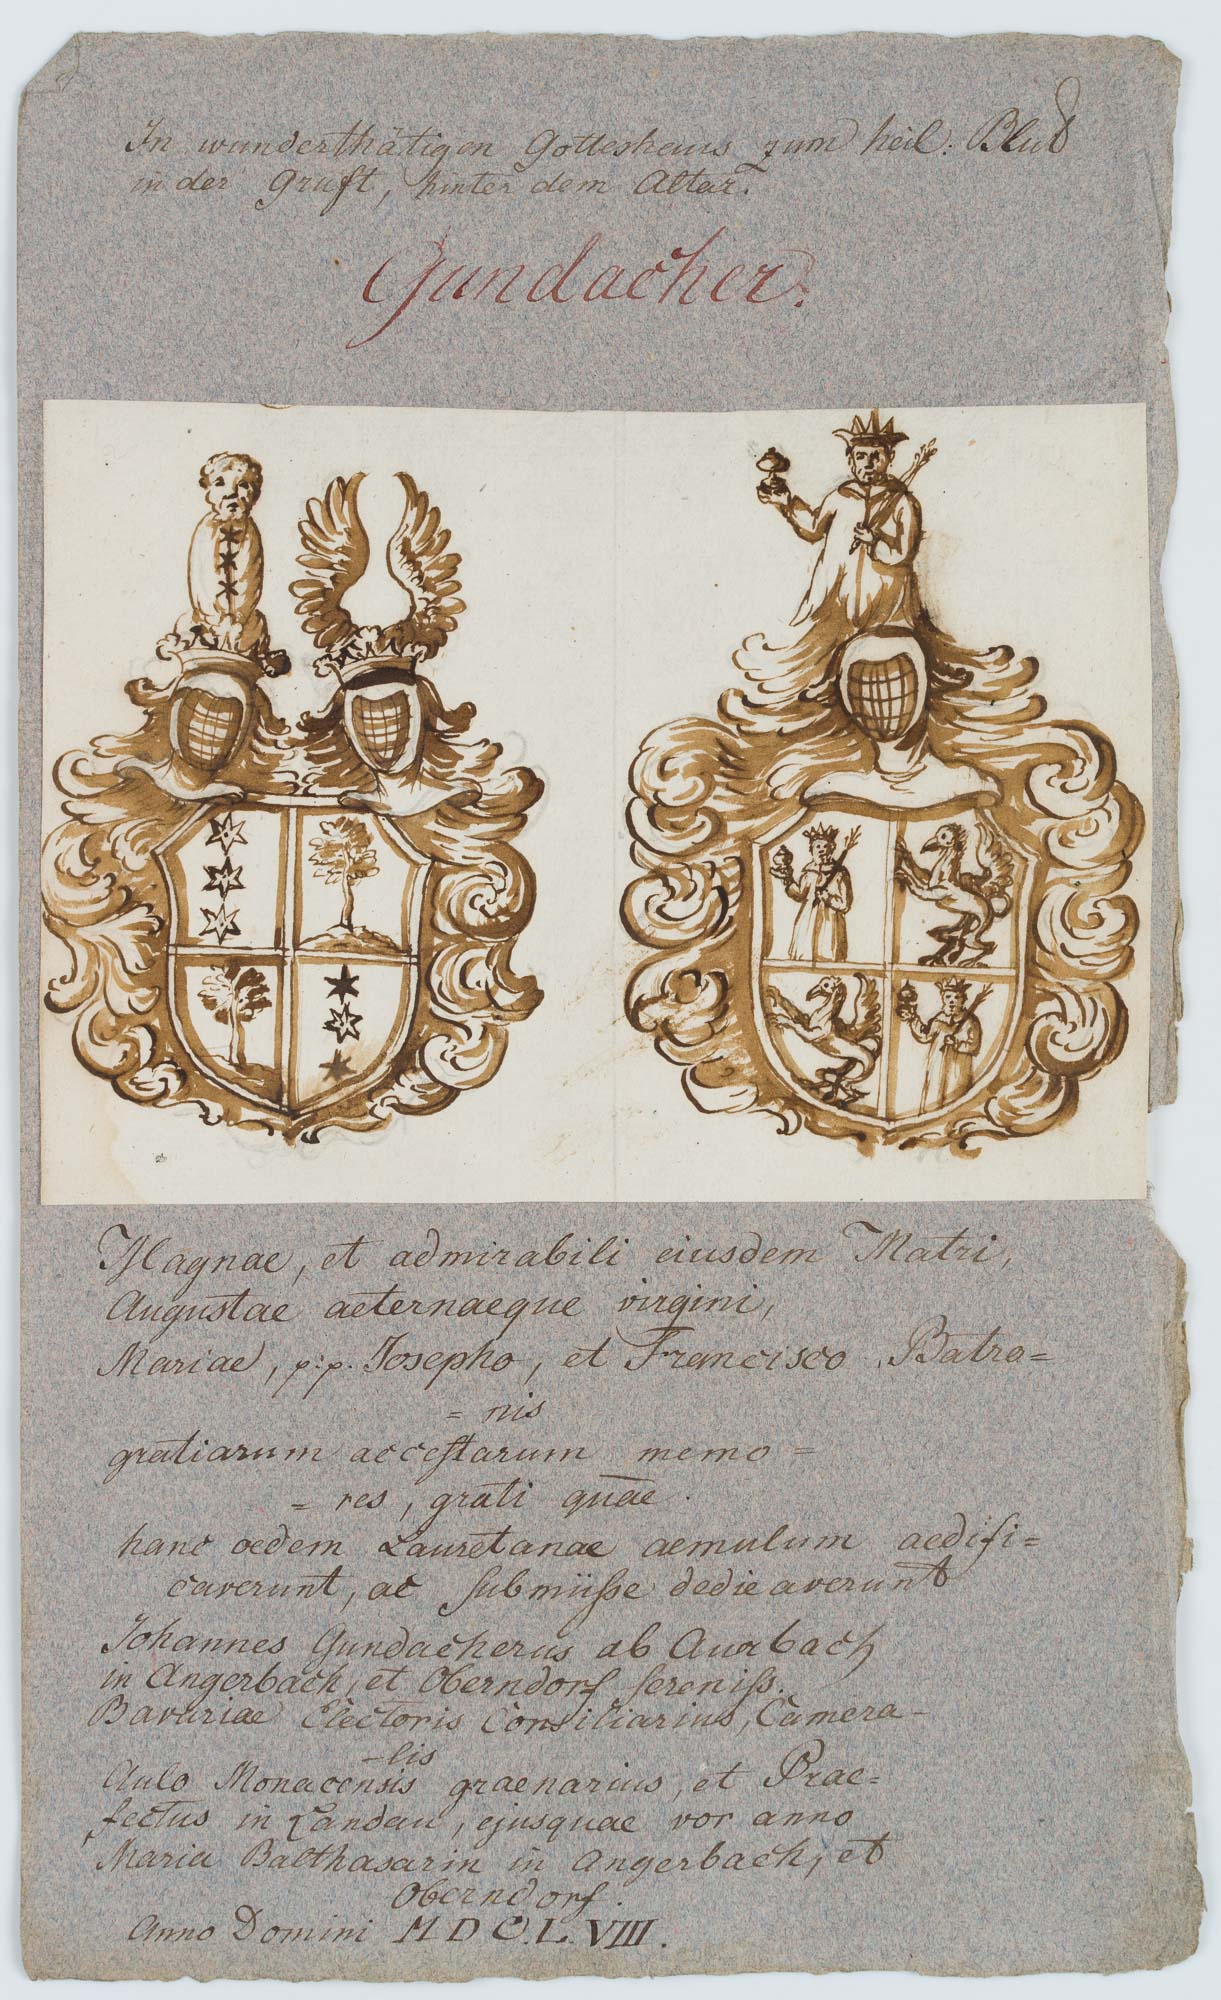 In wunderthätigen Gotteshaus zum heil: Blut
in der Gruft, hinter dem Altar.
Gundacher.
Magnae, et admirabili eiusdem Matri,
Augustae aeternaeque virgini,
Mariae, p:p. Josepho, et Francisco Batro=
= nis
gratiarum acceptarum memo =
= res, grati quae.
hanc aedem Lauretanae aemulum aedifi=
caverunt, ac submiisse dedicaverunt
Johannes Gundacherus ab Aurbach
in Angerbach, et Oberndorf sereniss.
Bavariae Electoris Consiliarius, Camera-
-lis
Aulo Monacensis graenarius, et Prae=
fectus in Landau, ejusquae vor anno
Maria Balthasarin in Angerbach, et
Oberndorf.
Anno Domini MDC.L.VIII.